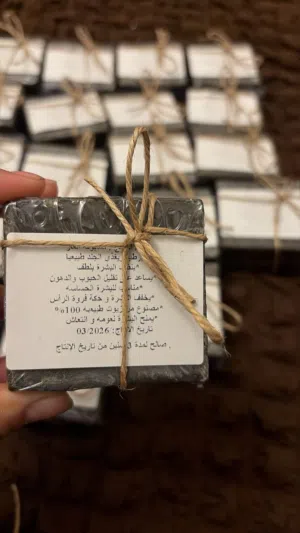 يغذي الجلد طبيعيا
البشرة بلطف
*يساعد على تقليل الحبوب والدهون
للبشرة الحساسه
*يخفف القشرة و حكة فروة الرأس
*مصنوع من زيوت طبيعيه 100%
*يمنح البشرة نعومه و انتعاش
تاريخ الانتاج: 03/2026
*صالح لمدة سنين من تاريخ الانتاج